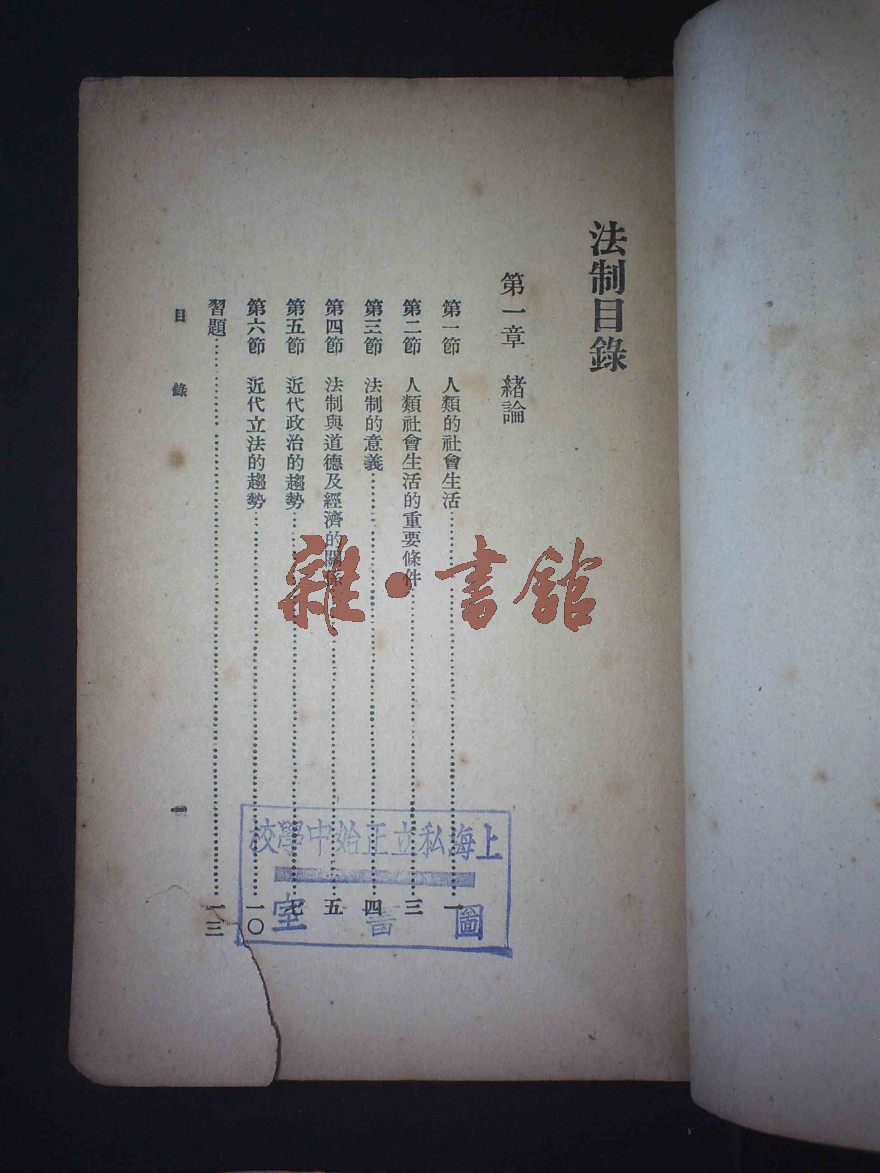 法制目錄
第一章 緒論
第一節 人類的社會生活……一
第二節 人類社會生活的重要條件……三
第三節 法制的意義……四
第四節 法制與道德及經濟的關係……五
第五節 近代政治的趨勢……七
第六節 近代立法的趨勢……一〇
習題……一三
目錄
一
上海私立正始中學校
圖書室
雜·書館